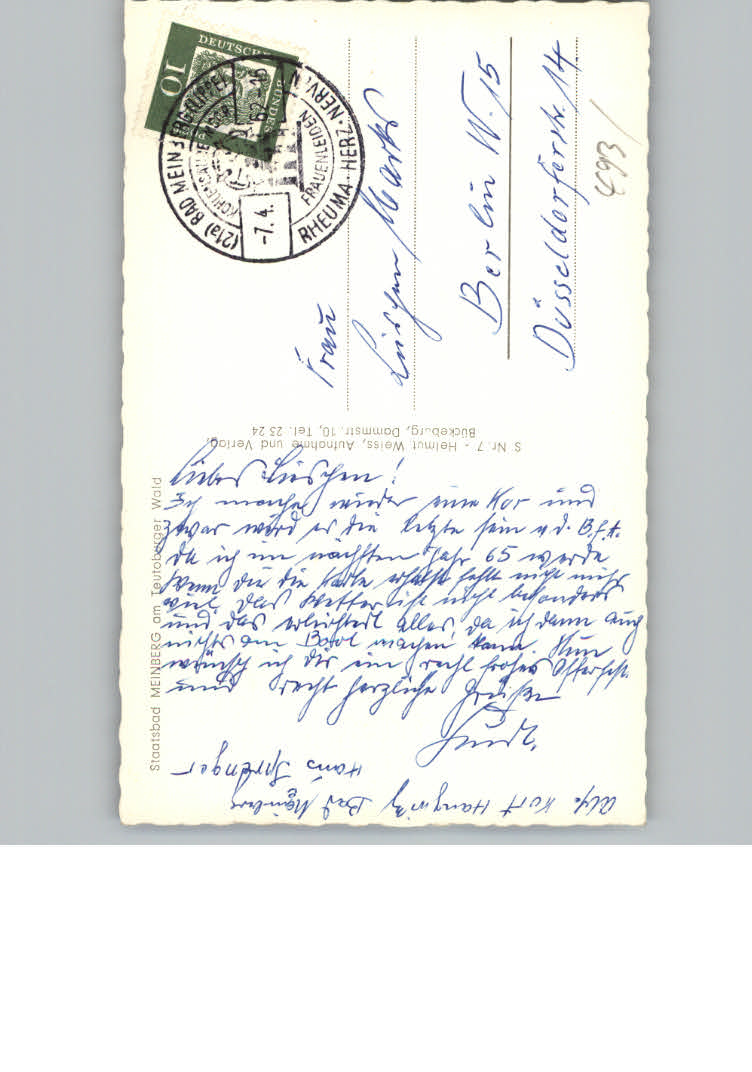 Staatsbad MEINBERG am Teutoburger Wald
S Nr. 7 - Helmut Weiss, Aufnahme und Verlag,
Bückeburg, Dammstr. 10, Tel. 23 24
Liebes Lieschen!
Ich mache wieder eine Kur und
zwar wird es die letzte sein v. d. B.f.A.
da ich im nächsten Jahr 65 werde
Wenn du die Karte erhälst nicht
weil das Wetter ist nicht besonders
und das alles, da ich dann auch
nichts am machen kann. Nun
wünsch ich dir ein recht frohes Osterfest.
und recht herzliche Grüße
Abs. Kurt Bad Meinberg
Haus
Frau
Lieschen Marks
Berlin W. 15
Düsseldorferstr. 14
493
10
DEUTSCHE BUNDESPOST
(21a) BAD MEINBERG (LIPPE)
-7.4.62-16
RHEUMA · HERZ · NERVEN
FRAUENLEIDEN